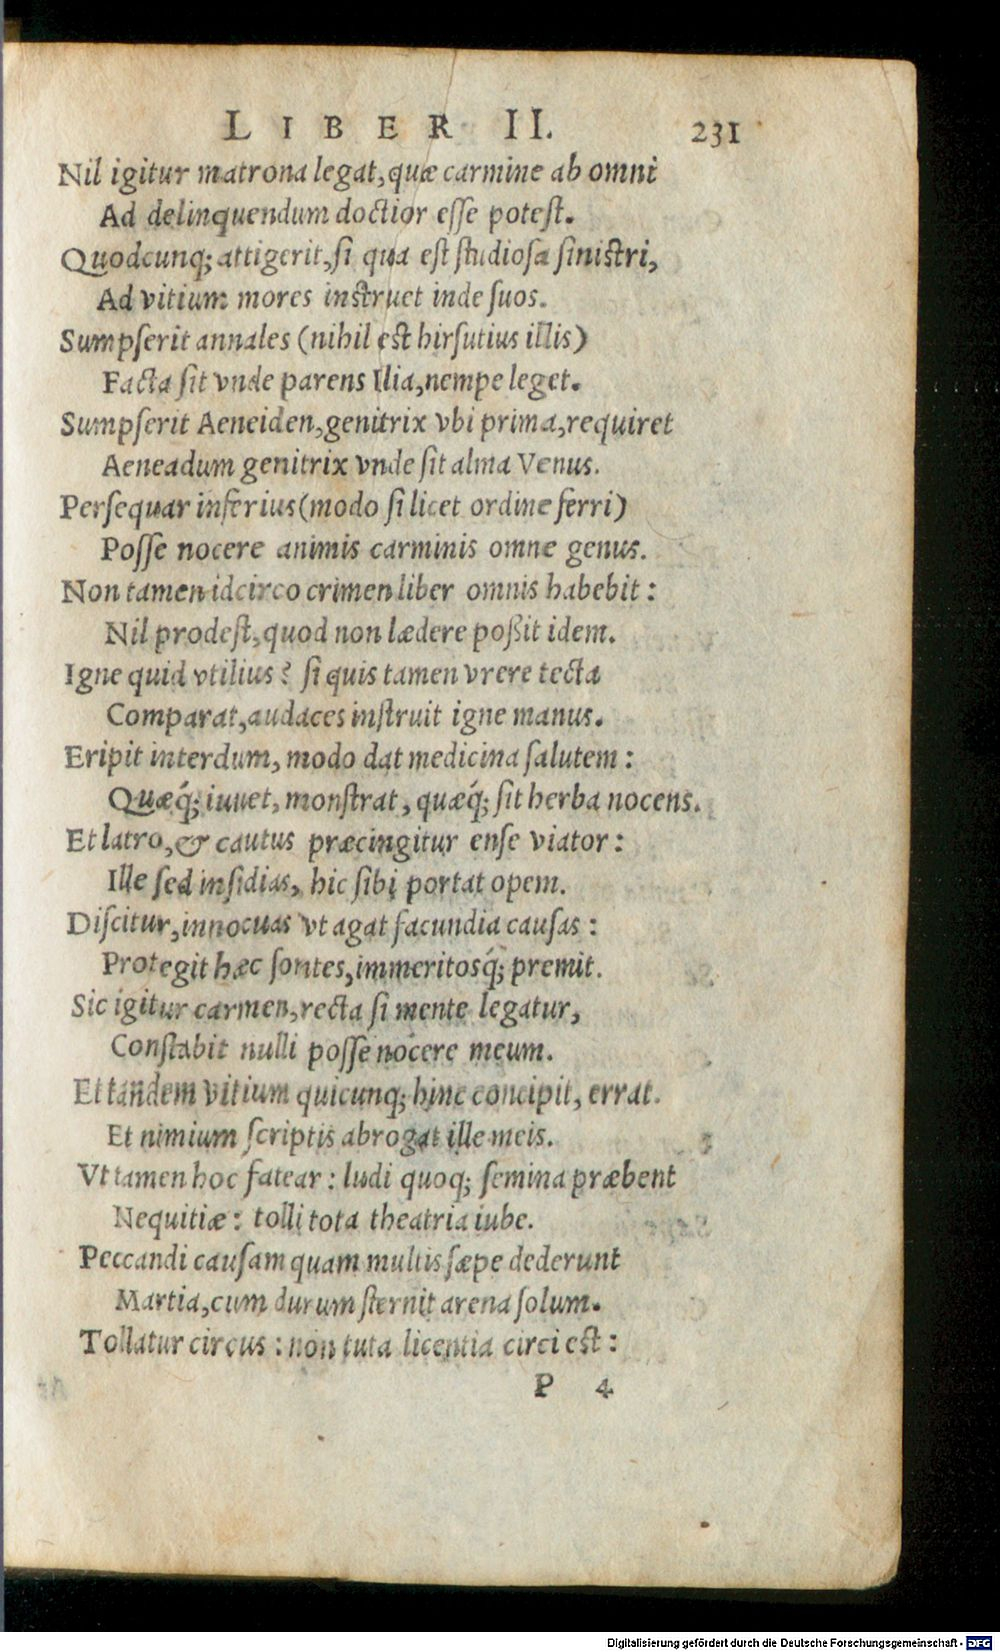 LIBER II. 231
Nil igitur matrona legat, quæ carmine ab omni
Ad delinquendum doctior eſſe poteſt.
Quodcunq; attigerit, ſi qua eſt ſtudioſa ſiniſtri,
Ad vitium mores inſtruet inde ſuos.
Sumpſerit annales (nihil eſt hirſutius illis)
Facta ſit vnde parens Ilia, nempe leget.
Sumpſerit Aeneiden, genitrix vbi prima, requiret
Aeneadum genitrix vnde ſit alma Venus.
Perſequar inferius (modo ſi licet ordine ferri)
Poſſe nocere animis carminis omne genus.
Non tamen idcirco crimen liber omnis habebit:
Nil prodeſt, quod non lædere poßit idem.
Igne quid vtilius? ſi quis tamen vrere tecta
Comparat, audaces inſtruit igne manus.
Eripit interdum, modo dat medicina ſalutem:
Quæq́; iuuet, monſtrat, quæq́; ſit herba nocens.
Et latro, & cautus præcingitur enſe viator:
Ille ſed inſidias, hic ſibi portat opem.
Diſcitur, innocuas vt agat facundia cauſas:
Protegit hæc ſontes, immeritosq́; premit.
Sic igitur carmen, recta ſi mente legatur,
Conſtabit nulli poſſe nocere meum.
Et tandem vitium quicunq; hinc concipit, errat.
Et nimium ſcriptis abrogat ille meis.
Vt tamen hoc fatear: ludi quoq; ſemina præbent
Nequitiæ: tolli tota theatria iube.
Peccandi cauſam quam multis ſæpe dederunt
Martia, cum durum ſternit arena ſolum.
Tollatur circus: non tuta licentia circi eſt:
P 4
Digitalisierung gefördert durch die Deutsche Forschungsgemeinschaft - DFG